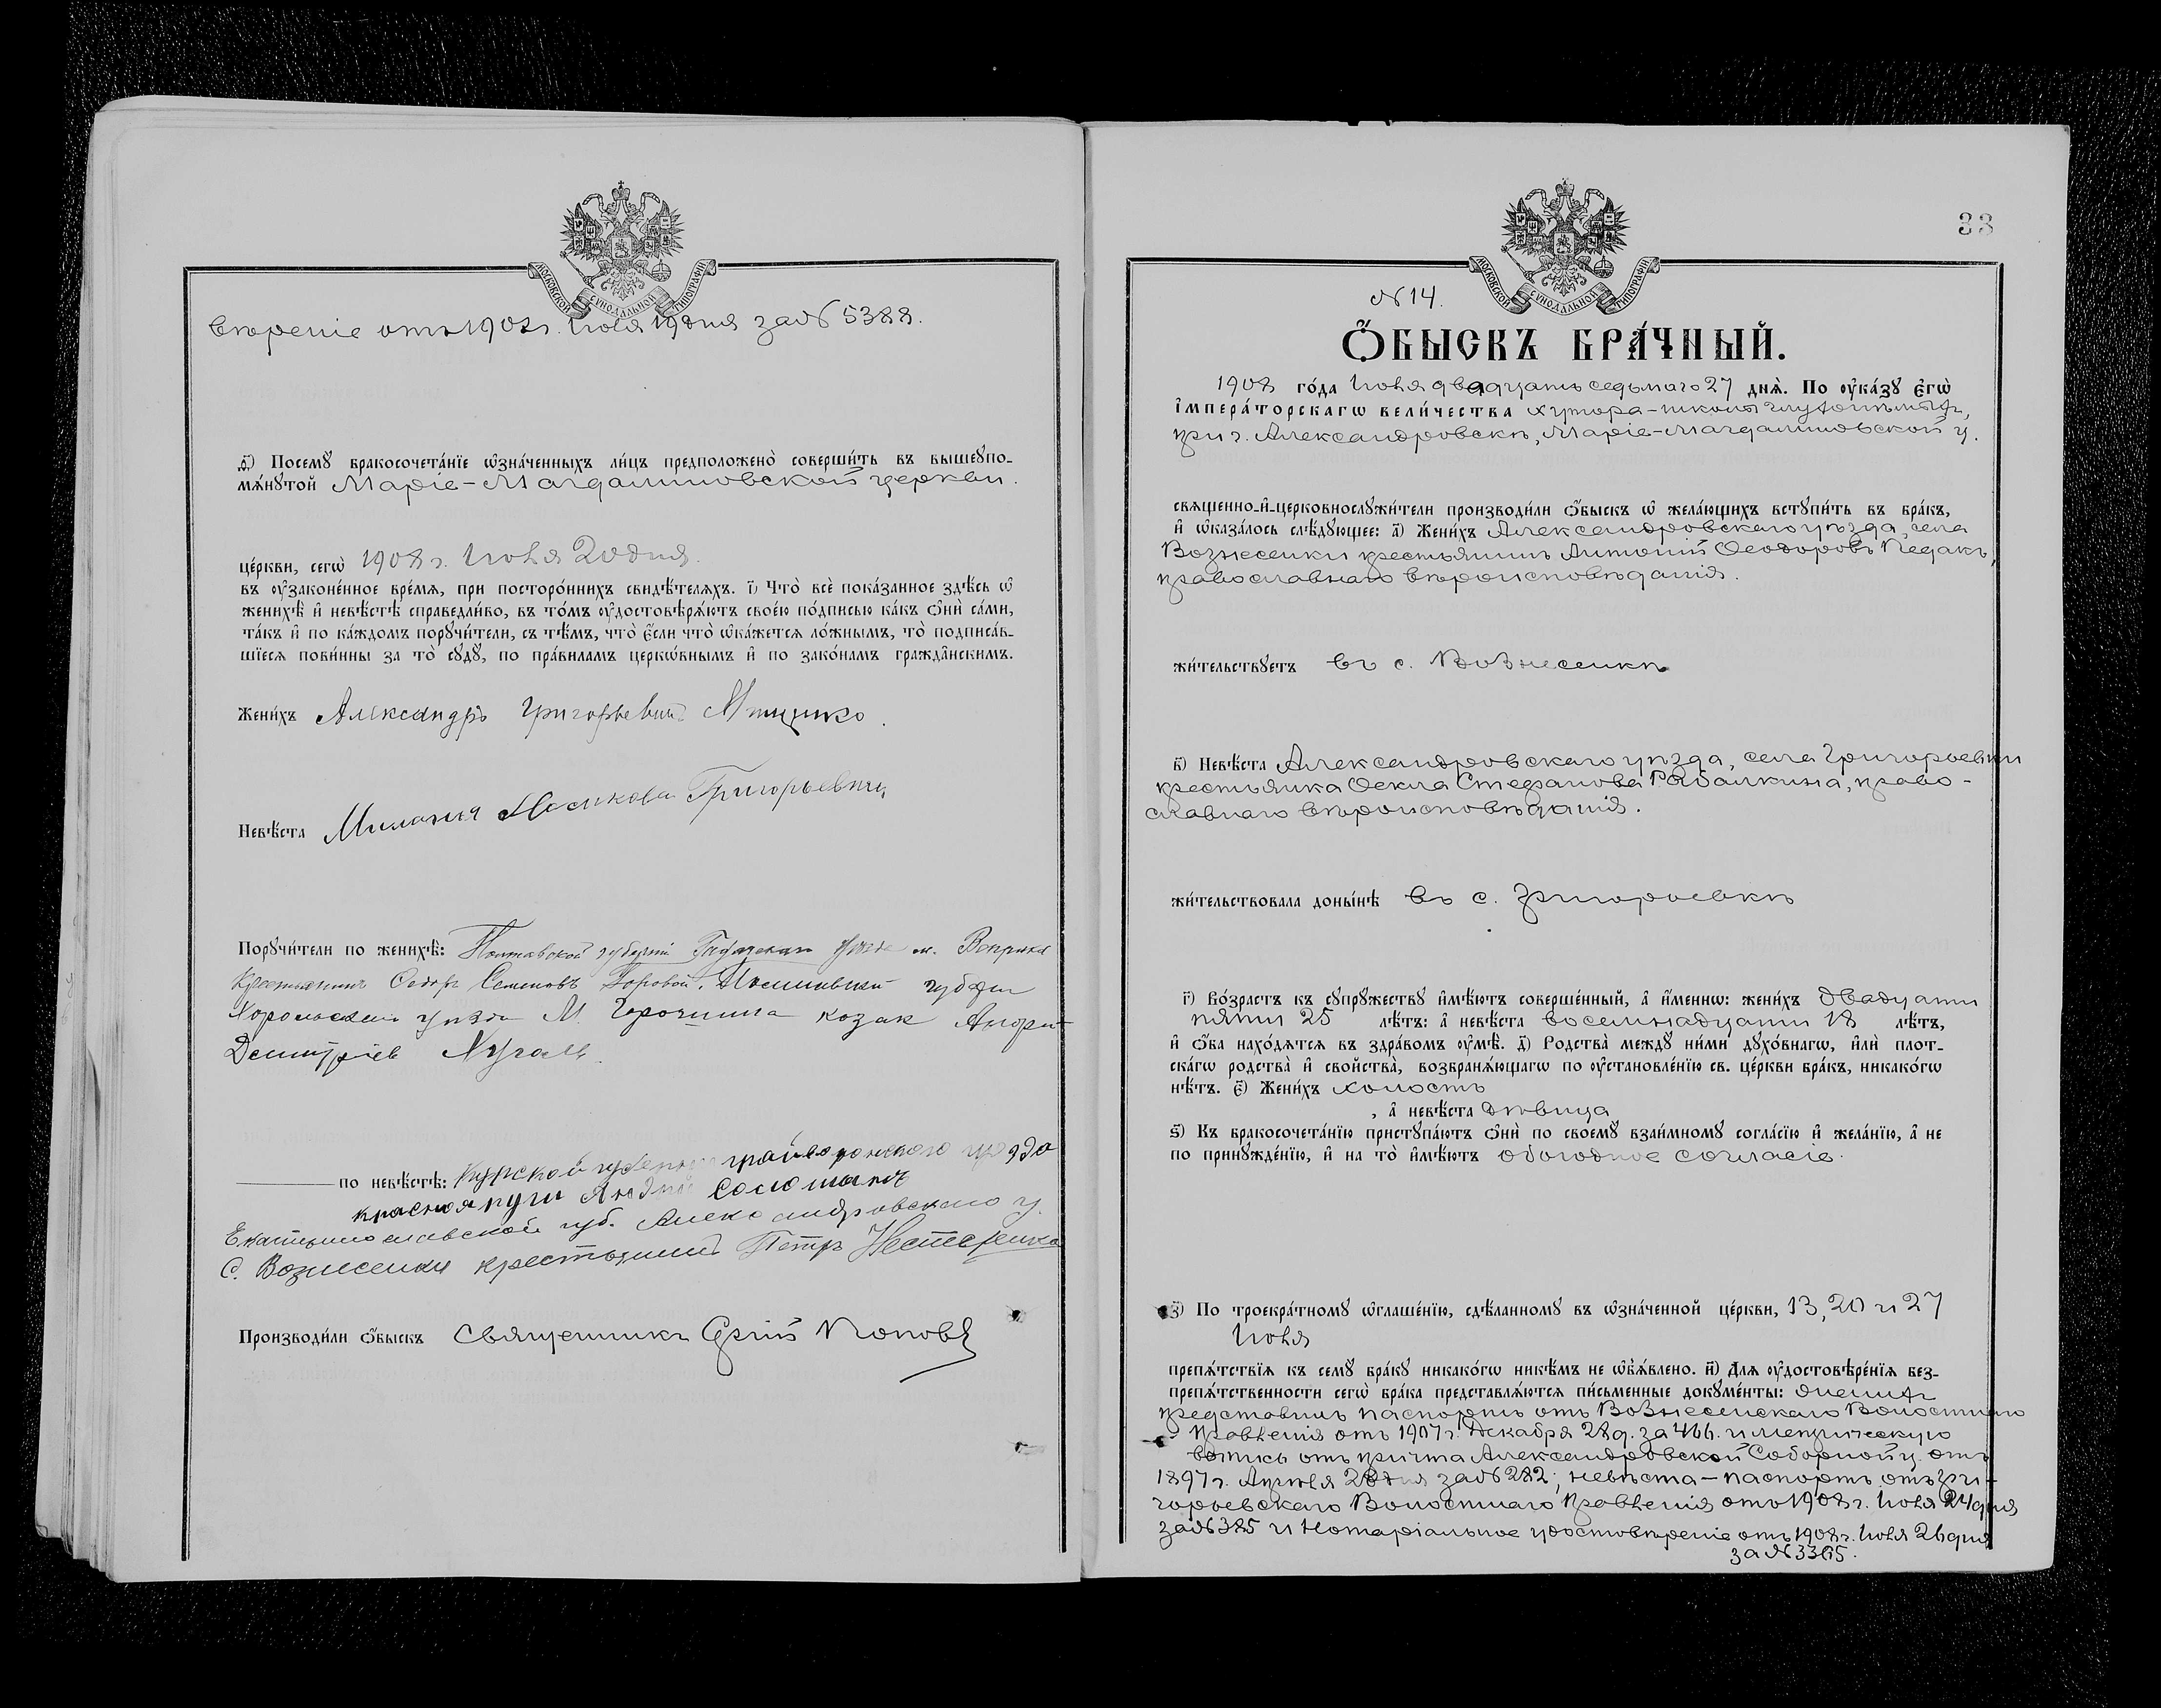 МОСКОВСКОЙ СѴНОДАЛЬНОЙ ТИПОГРАФІИ
вѣреніе отъ 1908 г. Іюля 19 дня за № 5388.
ѳ҃) Посемꙋ бракосочета́нїе ѡ҆зна́ченныхъ ли́цъ предположено̀ соверши́ть въ вышеꙋпо-
мѧ́нꙋтой Маріе-Магдалиновской церкви.
це́ркви, сегѡ̀ 1908 г. Іюля 20 дня.
въ ᲂу҆зако́ненное вре́мѧ, при посторо́ннихъ свидѣ́телѧхъ. і҃) Что̀ всѐ пока́занное здѣ́сь ѡ҆
женихѣ̀ и҆ невѣ́стѣ справедли́во, въ то́мъ ᲂу҆достовѣрѧ́ютъ свое́ю по́дписью ка́къ ѻ҆нѝ са́ми,
та́къ и҆ по ка́ждомъ порꙋчи́тели, съ тѣ́мъ, что̀ є҆́сли что̀ ѡ҆ка́жетсѧ ло́жнымъ, то̀ подписа́в-
шїесѧ пови́нны за то̀ сꙋдꙋ̀, по пра́виламъ церко́внымъ и҆ по зако́намъ гражда́нскимъ.
Жени́хъ Александръ Григорьевичъ
Невѣ́ста Григорьевна
Порꙋчи́тели по женихѣ̀: Полтавской губерніи Гадячскаго уѣзда м. Веприка
Крестьянинъ Семеновъ губерніи
Хорольскаго уѣзда М. козак Андрей
по невѣ́стѣ: Курской губерніи грайворонского уезда
Екатеринославской губ. Александровскаго у.
С. Вознесенки крестьянинъ Петръ Нестеренко
Производи́ли ѻ҆́быскъ Священникъ Поповъ
33
МОСКОВСКОЙ СѴНОДАЛЬНОЙ ТИПОГРАФІИ
№ 14.
Ѻ҆́БЫСКЪ БРА́ЧНЫЙ.
1908 го́да Іюля двадцать седьмаго 27 днѧ̀. По ᲂу҆ка́зꙋ є҆гѡ̀
і҆мпера́торскагѡ вели́чества хутора-школы глухонѣмыхъ,
при г. Александровскѣ, Маріе-Магдалиновской ц.
свѧщенно-и҆-церковнослꙋжи́тели производи́ли ѻ҆́быскъ ѡ҆ жела́ющихъ встꙋпи́ть въ бра́къ,
и҆ ѡ҆каза́лось слѣ́дꙋющее: а҃) Жени́хъ Александровскаго уѣзда, села
Вознесенки крестьянинъ Антоній Ѳеодоровъ Педакъ,
православнаго вѣроисповѣданія.
жи́тельствꙋетъ въ с. Вознесенкѣ
в҃) Невѣ́ста Александровскаго уѣзда, села Григорьевки
крестьянка Ѳекла Стефанова Рябалкина, право-
славнаго вѣроисповѣданія.
жи́тельствовала доны́нѣ въ с. Григорьевкѣ
г҃) Во́зрастъ къ сꙋпрꙋ́жествꙋ и҆мѣ́ютъ соверше́нный, а҆ и҆́меннѡ: жени́хъ двадцати
пяти 25 лѣ́тъ: а҆ невѣ́ста восемнадцати 18 лѣ́тъ,
и҆ ѻ҆́ба нахо́дѧтсѧ въ здра́вомъ ᲂу҆мѣ̀. д҃) Родства̀ междꙋ̀ ни́ми дꙋхо́внагѡ, и҆лѝ плот-
ска́гѡ родства̀ и҆ свойства̀, возбранѧ́ющагѡ по ᲂу҆становле́нїю св. це́ркви бра́къ, никако́гѡ
нѣ́тъ. є҃) Жени́хъ холостъ
, а҆ невѣ́ста дѣвица
ѕ҃) Къ бракосочета́нїю пристꙋпа́ютъ ѻ҆нѝ по своемꙋ̀ взаи́мномꙋ согла́сїю и҆ жела́нїю, а҆ не
по принꙋжде́нїю, и҆ на то̀ и҆мѣ́ютъ обоюдное согласіе.
з҃) По троекра́тномꙋ ѡ҆глаше́нїю, сдѣ́ланномꙋ въ ѡ҆зна́ченной це́ркви, 13, 20 и 27
Іюля
препѧ́тствїѧ къ семꙋ̀ бра́кꙋ никако́гѡ никѣ́мъ не ѡ҆б̾ѧ́влено. и҃) Длѧ ᲂу҆достовѣре́нїѧ без-
препѧ́тственности сегѡ̀ бра́ка представлѧ́ютсѧ пи́сьменные докꙋме́нты: женихъ
представилъ паспортъ отъ Вознесенскаго Волостного
Правленія отъ 1907 г. Декабря 28 д. за 466. и метрическую
выпись отъ причта Александровской Соборной ц. отъ
1897 г. Апрѣля 28 дня за № 282; невѣста – паспортъ отъ Гри-
горьевскаго Волостнаго Правленія отъ 1908 г. Іюля 24 дня
за № 385 и Нотаріальное удостовѣреніе отъ 1908 г. Іюля 26 дня
за № 3365.